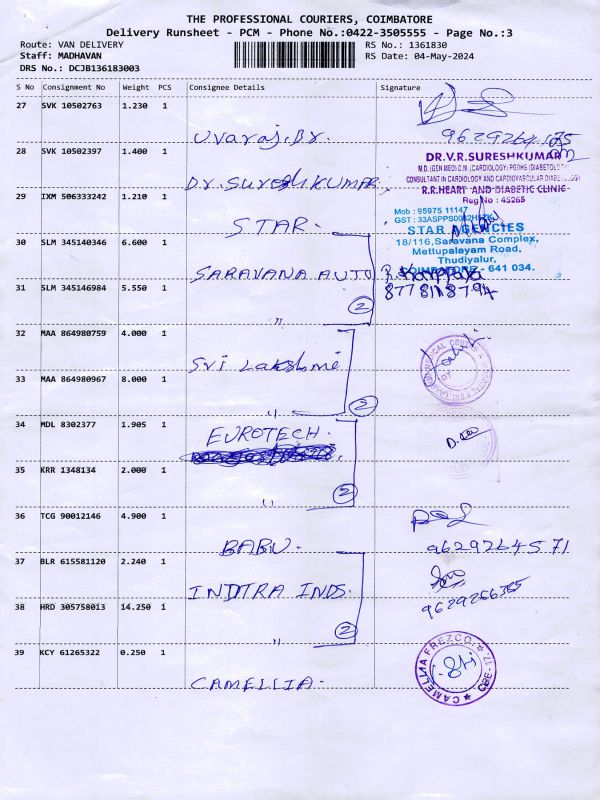 THE PROFESSIONAL COURIERS, COIMBATORE
Delivery Runsheet - PCM - Phone No.:0422-3505555 - Page No.:3
Route: VAN DELIVERY RS No.: 1361830
Staff: MADHAVAN RS Date: 04-May-2024
DRS No.: DCJB136183003
S No Consignment No Weight PCS Consignee Details Signature
27 SVK 10502763 1.230 1
Uvaraj.Dr.
28 SVK 10502397 1.400 1
DR.V.R.SURESHKUMAR
M.D. (GEN MED) D.M. (CARDIOLOGY) PGDHS (DIABETOLOGY)
CONSULTANT IN CARDIOLOGY AND CARDIOVASCULAR
Dr. Suresh KUMAR,
R.R.HEART AND DIABETIC CLINIC
29 IXM 506333242 1.210 1
Reg No : 45265
Mob : 95975 11147
STAR.
STAR AGENCIES
30 SLM 345140346 6.600 1
18/116, Saravana Complex,
Mettupalayam Road,
Thudiyalur,
SARAVANA AUTO
COIMBATORE - 641 034.
31 SLM 345146984 5.550 1
2
"
32 MAA 864980759 4.000 1
Sri Lakshmi
33 MAA 864980967 8.000 1
" 2
34 MDL 8302377 1.905 1
EUROTECH.
35 KRR 1348134 2.000 1
" 2
36 TCG 90012146 4.900 1
BABU. 9629264571
37 BLR 615581120 2.240 1
INDTRA INDS.
38 HRD 305758013 14.250 1
" 2
39 KCY 61265322 0.250 1
CAMELLIA FREZCO
CBE-17.
CAMELLIA.